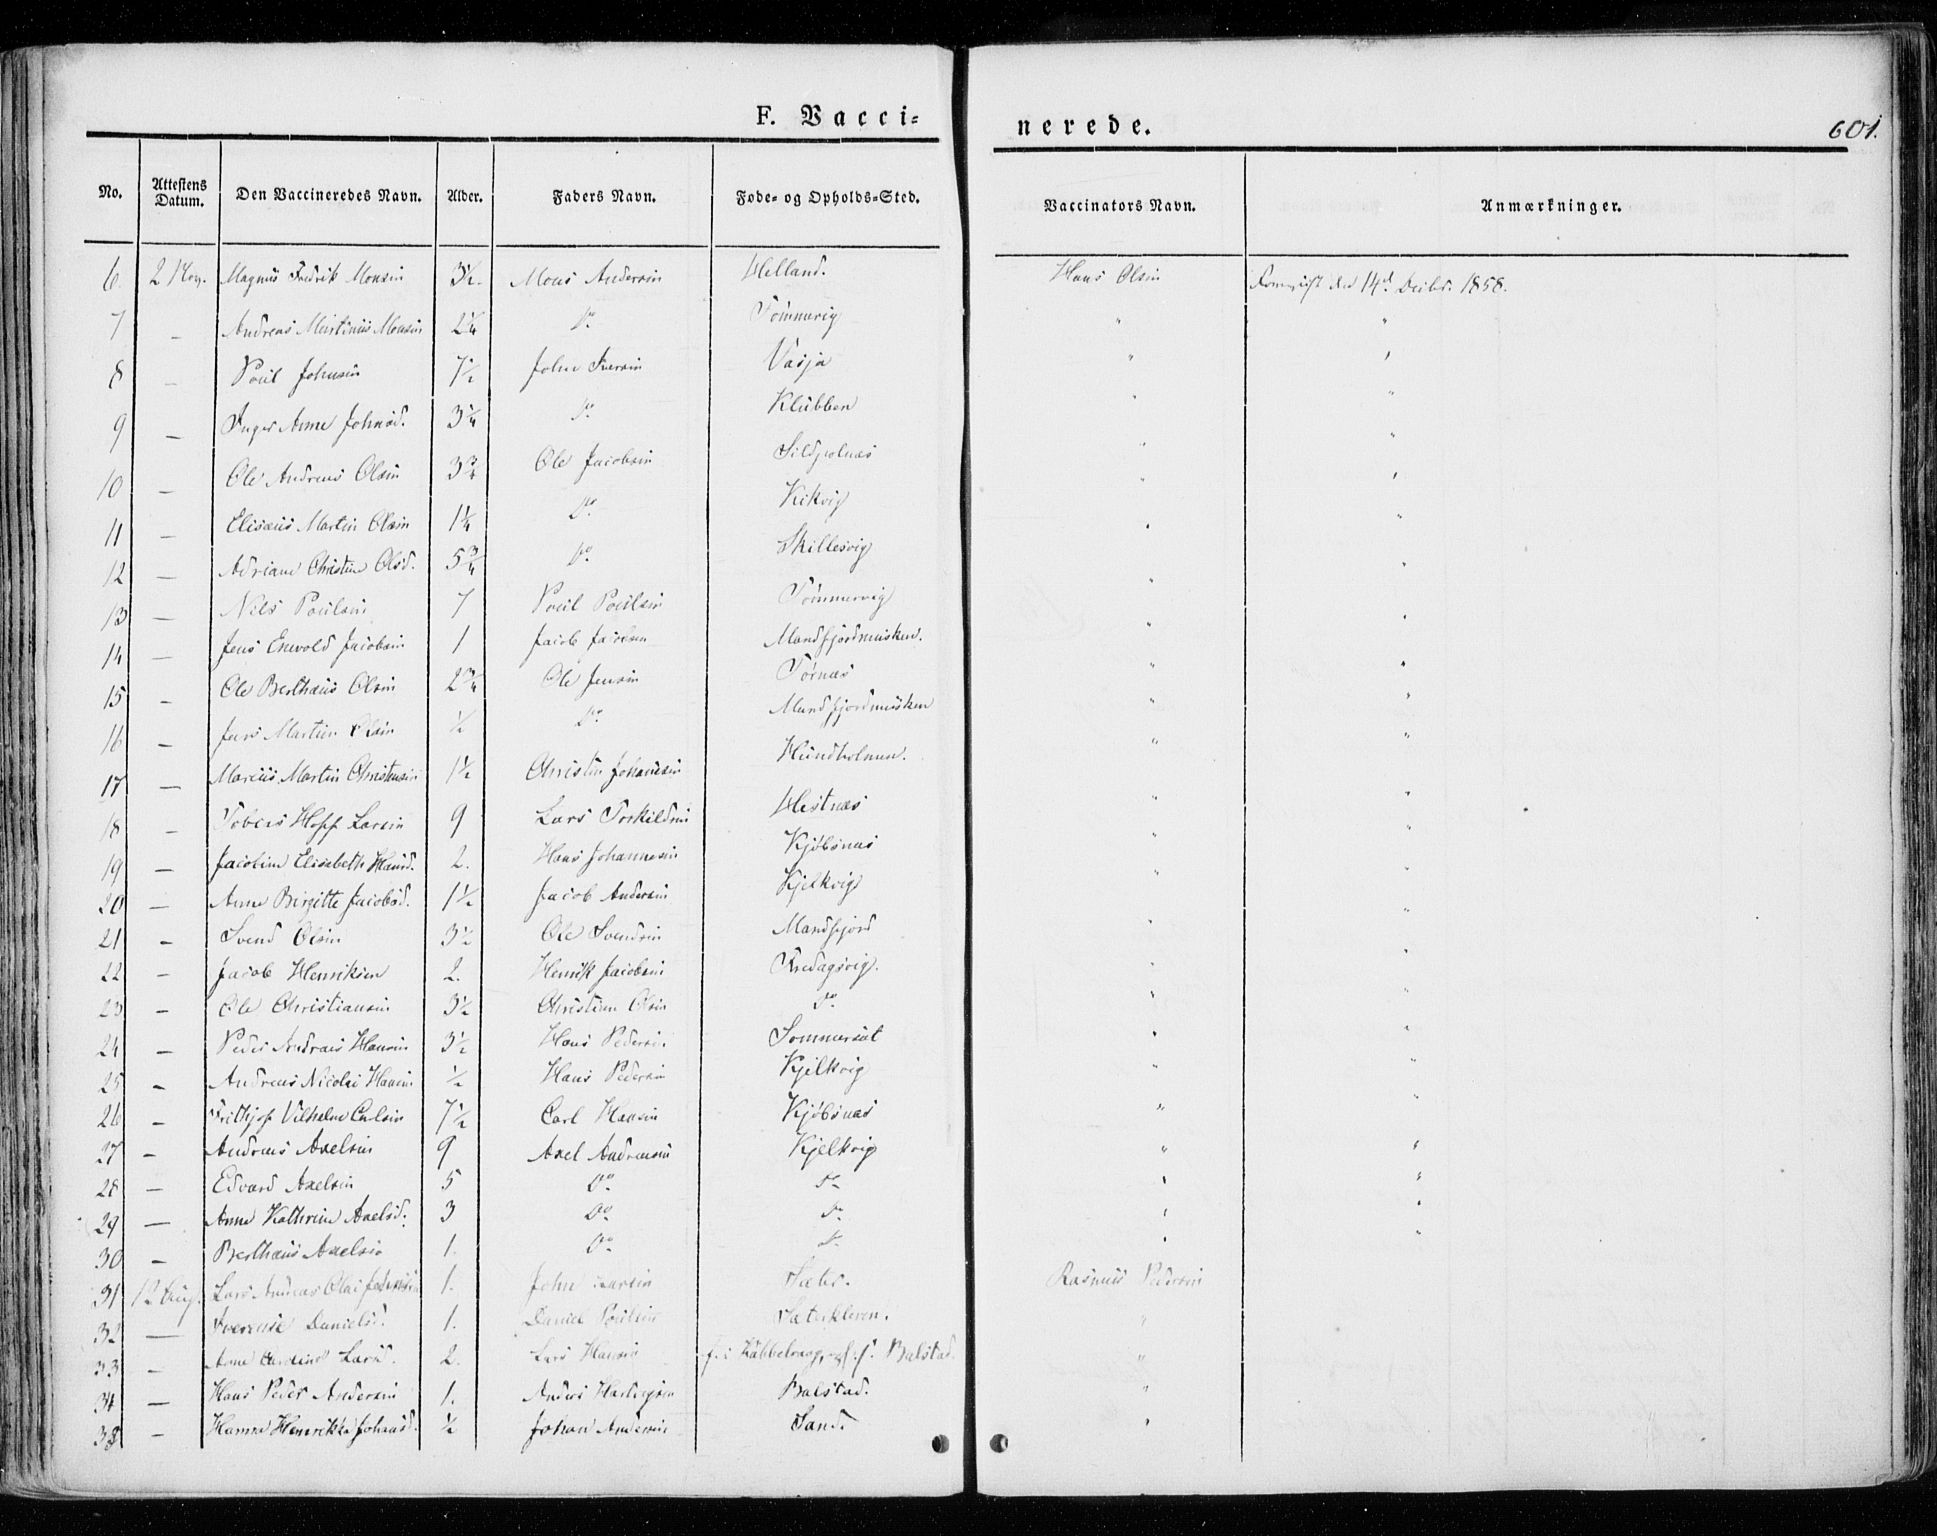 F. Vacci=
nerede.
601.
No. Attestens Datum. Den Vaccineredes Navn. Alder. Faders Navn. Føde- og Opholds-Sted. Vaccinators Navn. Anmærkninger.
6. 2 Nov. Magnus Fredrik Monsen 3½. Mons Andersen Helland. Hans Olsen den 14d Decbr. 1858.
7 — Andreas Martinus Monsen 2¼ Do Tømmervig " "
8 — Poul Johnsen 7½ John Iversen Vasja " "
9 — Inger Anne Johnsd. 3¼ Do Klubben " "
10 — Ole Andreas Olsen 3¾ Ole Jacobsen Sildpolnæs " "
11 — Elisæus Martin Olsen 1¼ Do Kikvig " "
12 — Adriane Christine Olsd. 5¾ Do Skillesvig " "
13 — Nils Poulsen 7 Poul Poulsen Tømmervig " "
14 — Jens Enevold Jacobsen 1 Jacob Jacobsen Mandfjordmusken. " "
15 — Ole Berthæus Olsen 2¾ Ole Jensen Tørnæs " "
16 — Jens Martin Olsen ½ Do Mandfjordmusken " "
17 — Marcus Martin Christensen 1½ Christen Johansen Hundholmen. " "
18 — Tobias Hopf Larsen 9 Lars Torkildsen Hestnæs " "
19 — Jacobine Elisabeth Hansd. 2. Hans Johannesen Kjøbsnæs " "
20 — Anne Birgitte Jacobsd. 1½ Jacob Andersen Kjelkvig " "
21 — Svend Olsen 3½ Ole Svendsen Mandfjord " "
22 — Jacob Henriksen 2. Henrik Jacobsen Fredagsvig. " "
23 — Ole Christiansen 3½ Christian Olsen Do " "
24 — Peder Andreas Hansen 3½ Hans Pedersen Sommersæt " "
25 — Andreas Nicolai Hansen ½ Hans Pedersen Kjelkvig " "
26 — Frithjof Vilhelm Carlsen 7½ Carl Hansen Kjøbsnæs " "
27 — Andreas Axelsen 9 Axel Andreasen Kjelkvig " "
28 — Edvard Axelsen 5 Do Do " "
29 — Anne Kathrine Axelsd. 3 Do Do " "
30 — Berthæus Axelsen 1. Do Do " "
31 12 Aug. Lars Andreas Olai Johnsen 1. John Larsen Sæter. Rasmus Pedersen
32 — Iverensе Danielsd. 1. Daniel Poulsen Sæterkleven. "
33 — Anne Larsd. 2. Lars Hansen f. i Kabbelvaag, Balstad. "
34 — Hans Peder Andersen 1. Anders Hartvigsen Balstad. "
35 — Hanna Henrikka Johansd. ½ Johan Andersen Sand. "